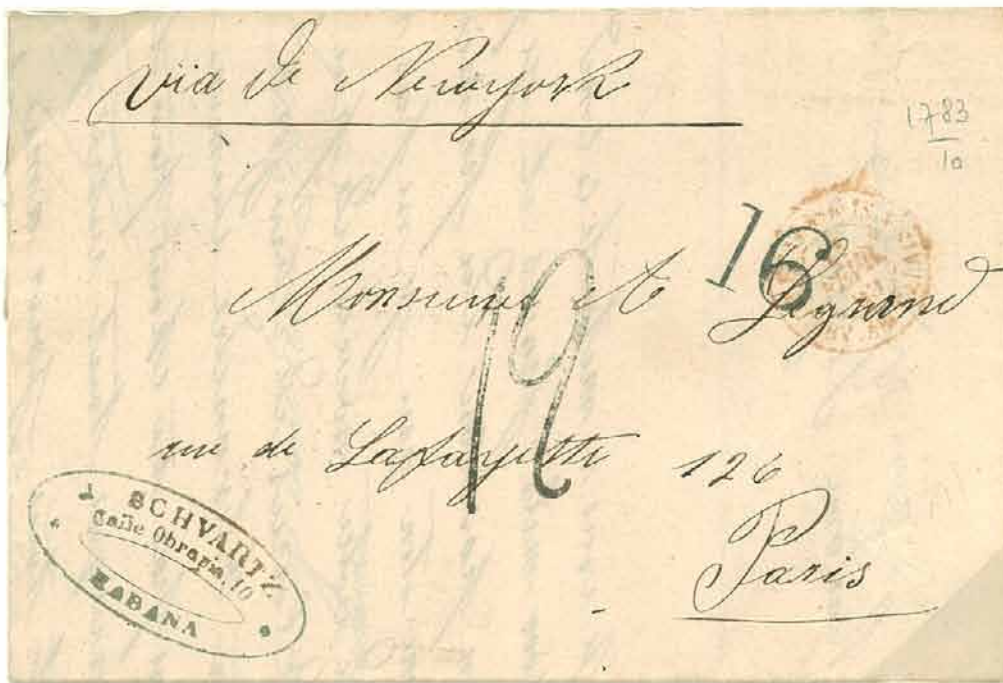 via de Newyork
1783
10
16
Monsieur A Legrand
12
rue de Lafayette 126
Paris
J SCHVARTZ
Calle Obrapia, 10
HABANA